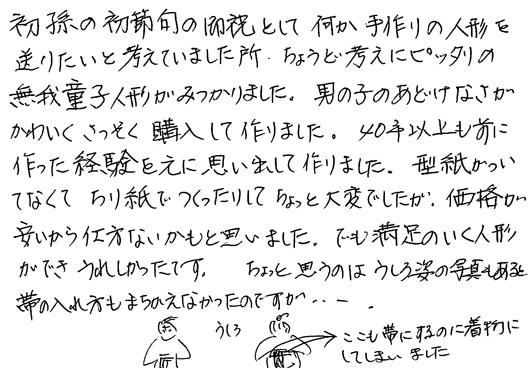 初孫の初節句の御祝として何か手作りの人形を
送りたいと考えていました所、ちょうど考えにピッタリの
無我童子人形がみつかりました。男の子のあどけなさが
かわいくさっそく購入して作りました。40年以上も前に
作った経験を元に思い出して作りました。型紙がつい
てなくてちり紙でつくったりしてちょっと大変でしたが、価格が
安いから仕方ないかもと思いました。でも満足のいく人形
ができうれしかったです。ちょっと思うのはうしろ姿の写真もあると
帯の入れ方もまちがえなかったのですが・・ー．
うしろ
ここも帯にするのに着物に
してしまいました